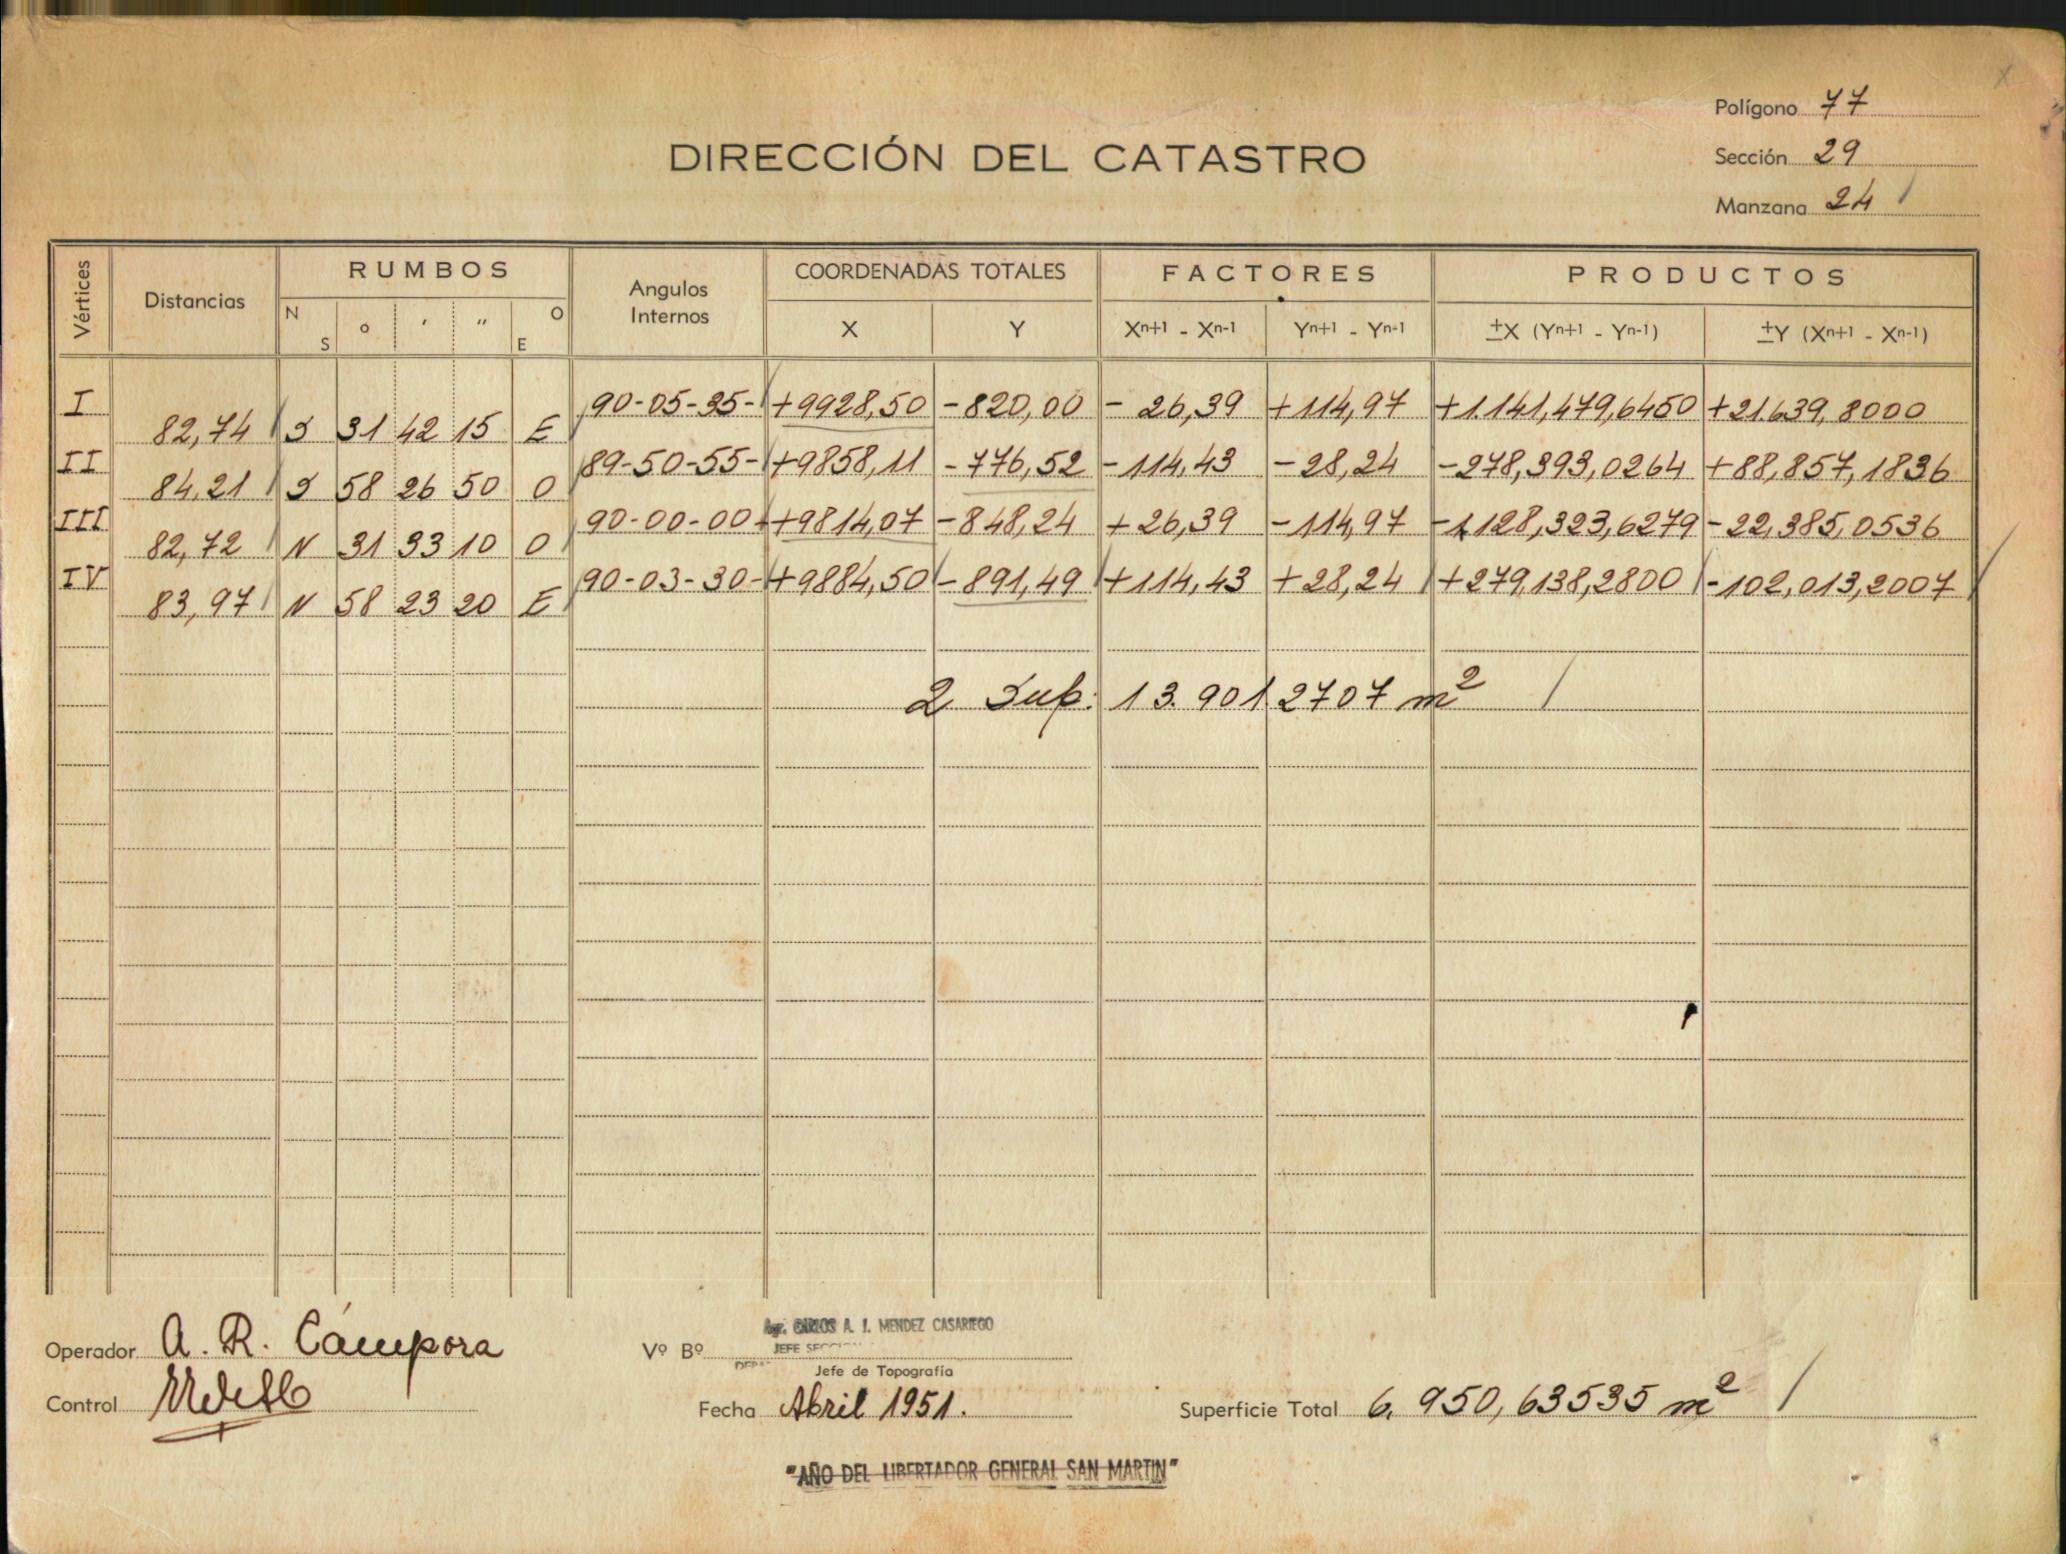 Polígono 77
DIRECCIÓN DEL CATASTRO
Sección 29
Manzana 24
Vértices Distancias RUMBOS Angulos Internos COORDENADAS TOTALES FACTORES PRODUCTOS
N S o ' " O E X Y Xn+1 - Xn-1 Yn+1 - Yn-1 ±X (Yn+1 - Yn-1) ±Y (Xn+1 - Xn-1)
I 90-05-35- +9928,50 -820,00 - 26,39 +114,97 +1.141,479,6450 +21.639,8000
82,74 S 31 42 15 E
II 89-50-55- +9858,11 -776,52 -114,43 -28,24 -278,393,0264 +88,857,1836
84,21 S 58 26 50 O
III 90-00-00- +9814,07 -848,24 +26,39 -114,97 -1128,323,6279 -22,385,0536
82,72 N 31 33 10 O
IV 90-03-30- +9884,50 -891,49 +114,43 +28,24 +279,138,2800 -102,013,2007
83,97 N 58 23 20 E
2 Sup: 13.901 2707 m²
Operador A. R. Cámpora
Vº Bº
Agr. CARLOS A. J. MENDEZ CASARIEGO
JEFE
Jefe de Topografía
Control
Fecha Abril 1951.
Superficie Total 6.950,63535 m²
"AÑO DEL LIBERTADOR GENERAL SAN MARTIN"